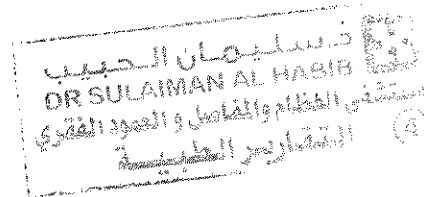 د. سليمان الحبيب
DR SULAIMAN AL HABIB
مستشفى العظام والمفاصل والعمود الفقري
التقارير الطبية